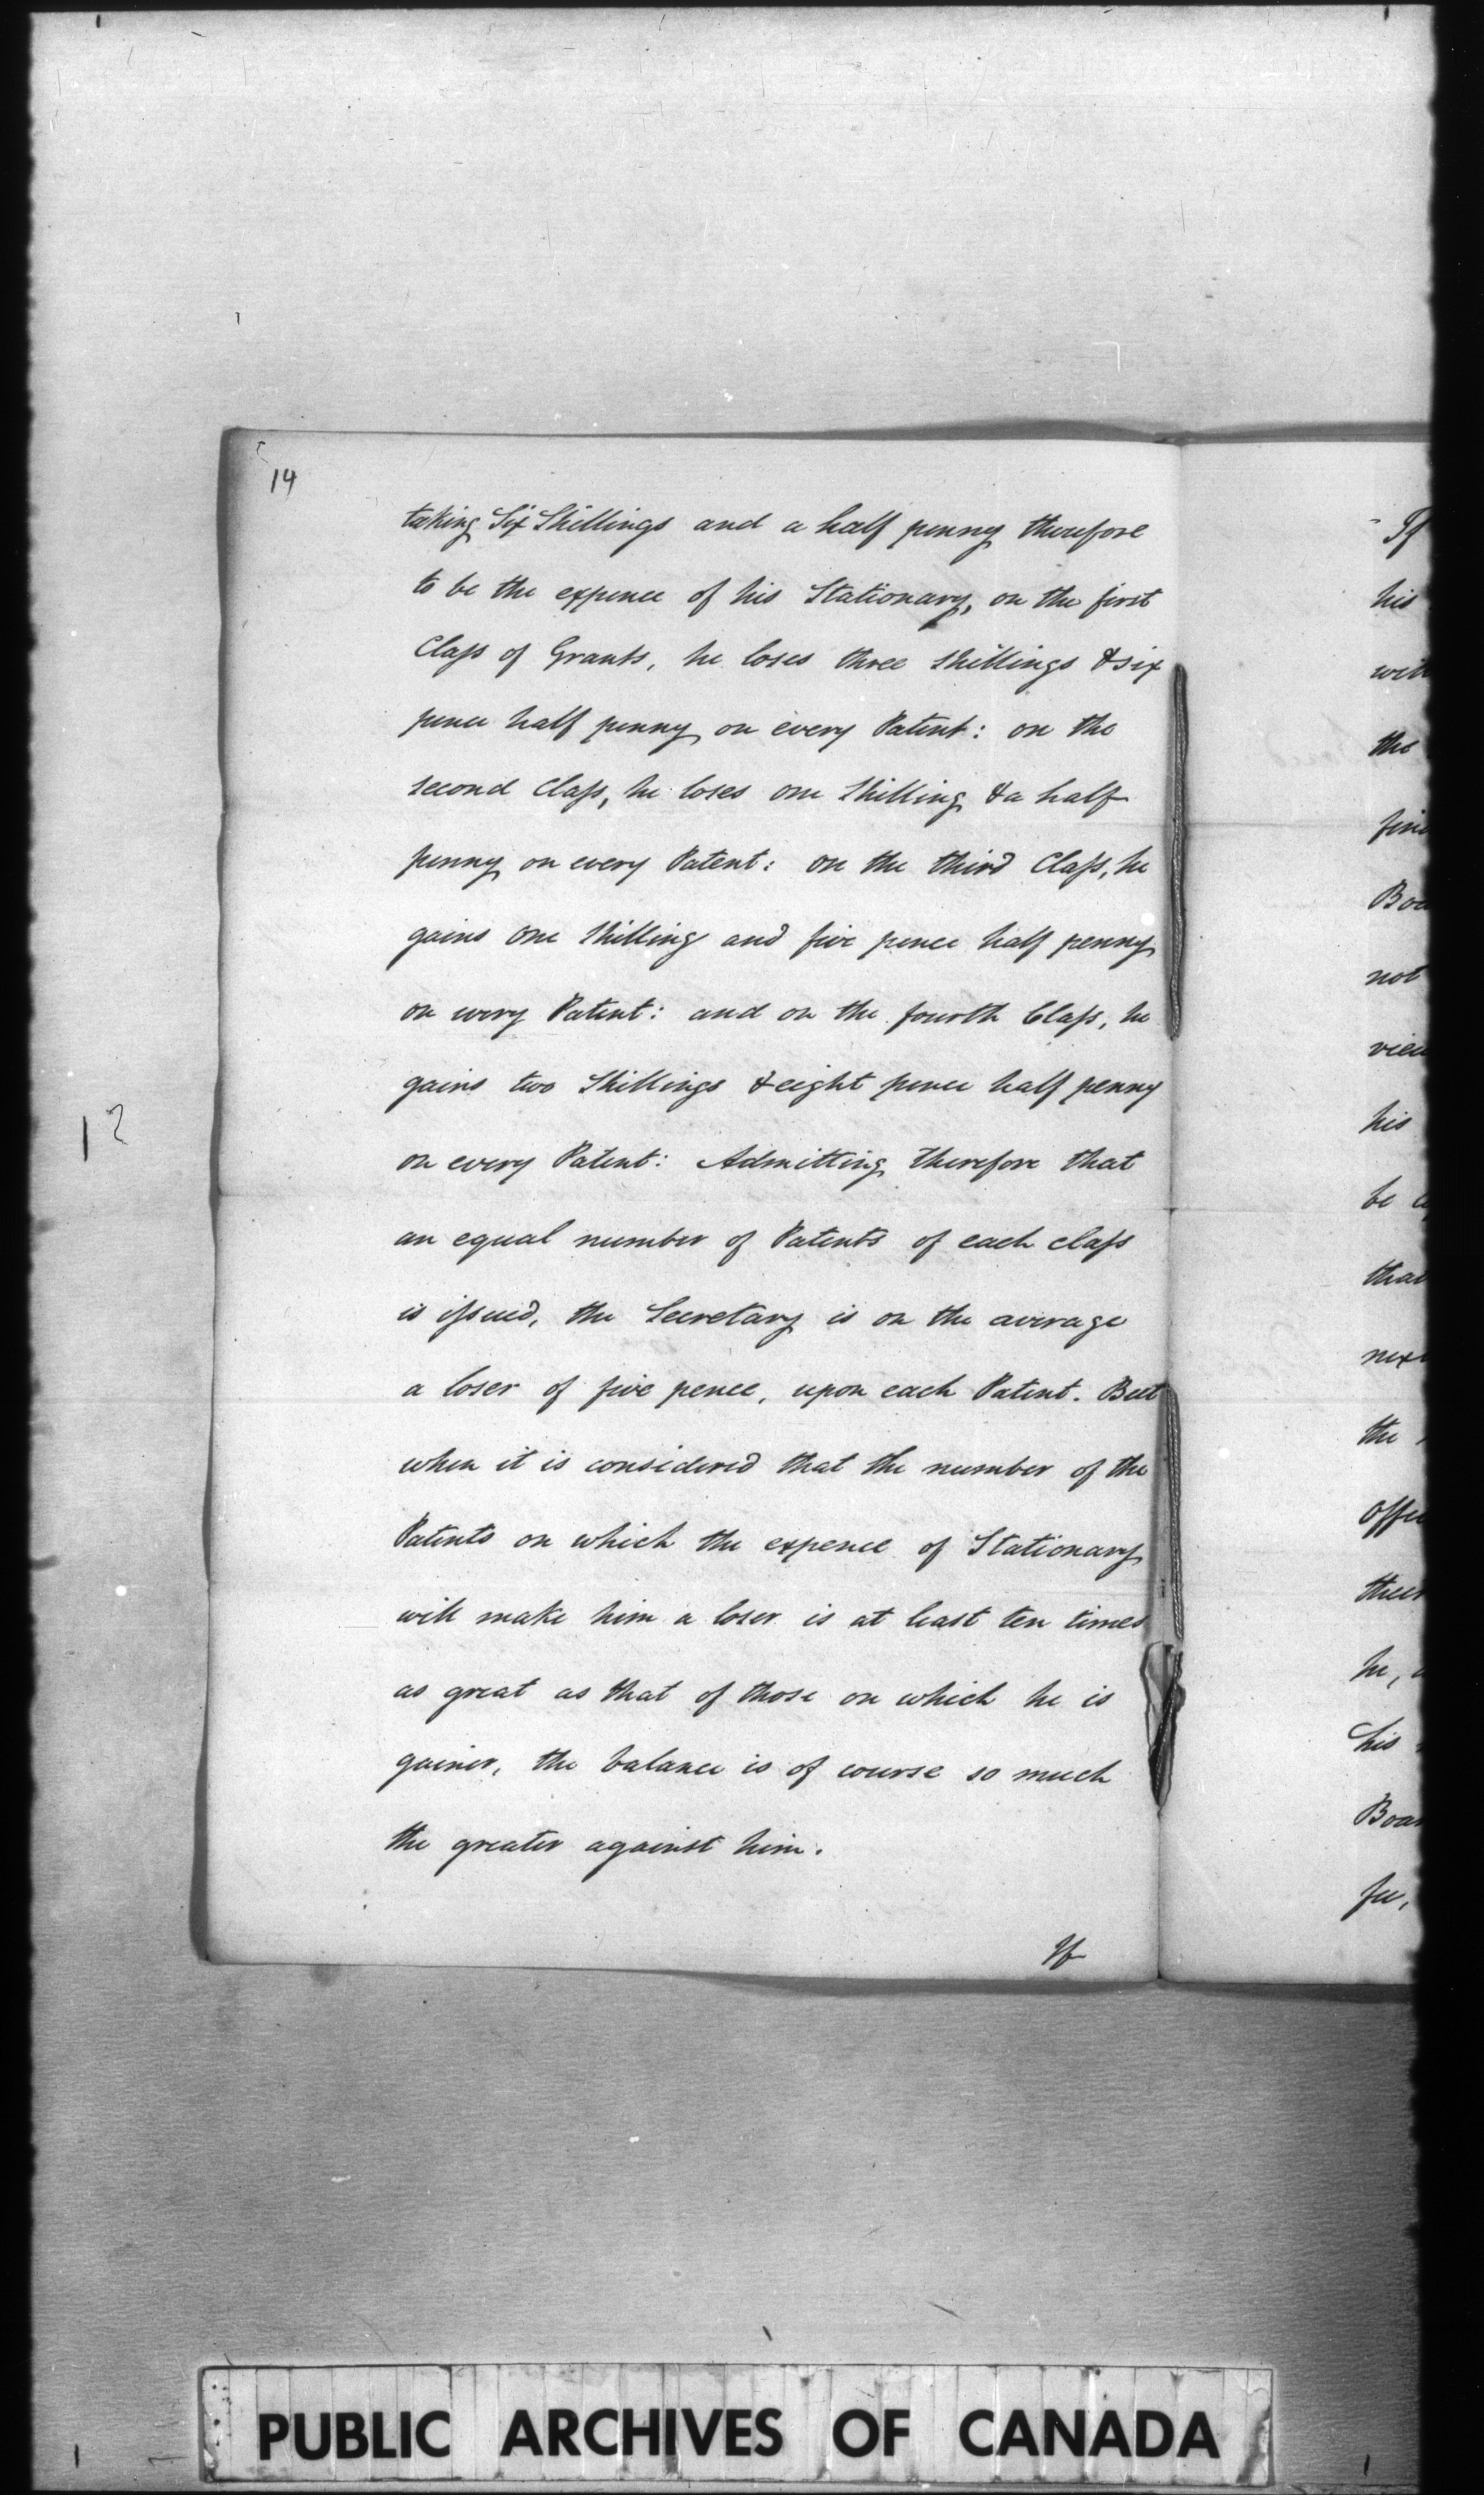 14
taking Six Shillings and a half penny therefore
to be the expence of his Stationary, on the first
Class of Grants, he loses three Shillings & six
pence half penny on every Patent: on the
second Class, he loses one Shilling & a half
penny on every Patent: on the third Class, he
gains one Shilling and five pence half penny
on every Patent: and on the fourth Class, he
gains two Shillings & eight pence half penny
on every Patent: Admitting therefore that
an equal number of Patents of each class
is issued, the Secretary is on the average
a loser of five pence, upon each Patent. But
when it is considered that the number of the
Patents on which the expence of Stationary
will make him a loser is at least ten times
as great as that of those on which he is
gainer, the balance is of course so much
the greater against him.
If
12
If
his
the
not
his
be
the
he,
his
PUBLIC ARCHIVES OF CANADA